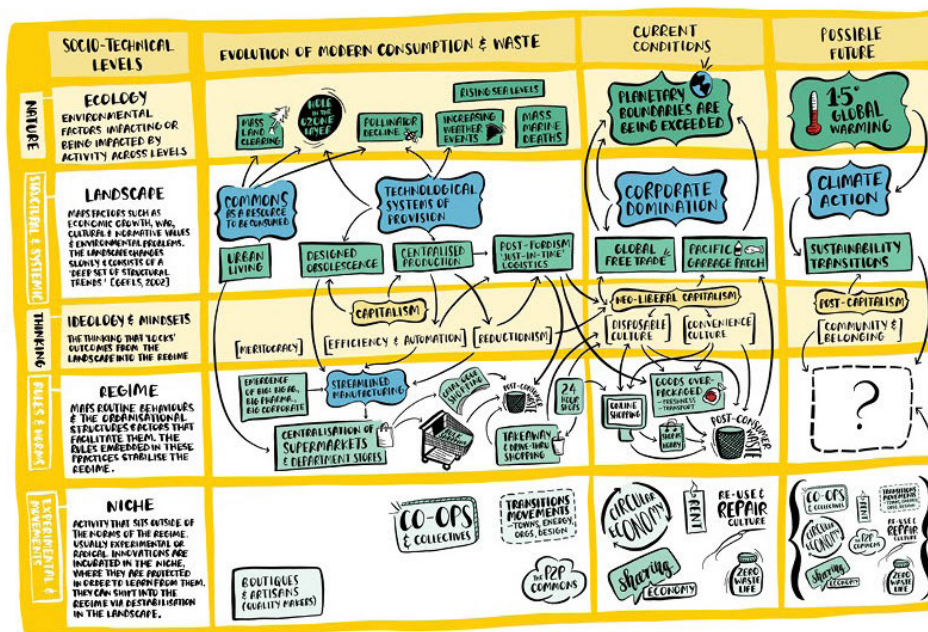 SOCIO-TECHNICAL
LEVELS
EVOLUTION OF MODERN CONSUMPTION & WASTE
CURRENT
CONDITIONS
POSSIBLE
FUTURE
NATURE
ECOLOGY
ENVIRONMENTAL
FACTORS IMPACTING OR
BEING IMPACTED BY
ACTIVITY ACROSS LEVELS
MASS
LAND
CLEARING
HOLE
IN THE
OZONE
LAYER
POLLINATOR
DECLINE
RISING SEA LEVELS
INCREASING
WEATHER
EVENTS
MASS
MARINE
DEATHS
PLANETARY
BOUNDARIES ARE
BEING EXCEEDED
1.5°
GLOBAL
WARMING
STRUCTURAL & SYSTEMIC
LANDSCAPE
MAPS FACTORS SUCH AS
ECONOMIC GROWTH, WAR,
CULTURAL & NORMATIVE VALUES
& ENVIRONMENTAL PROBLEMS.
THE LANDSCAPE CHANGES
SLOWLY & CONSISTS OF A
'DEEP SET OF STRUCTURAL
TRENDS' [GEELS, 2002]
COMMONS
AS A RESOURCE
TO BE CONSUMED
TECHNOLOGICAL
SYSTEMS OF
PROVISION
URBAN
LIVING
DESIGNED
OBSOLESCENCE
CENTRALISED
PRODUCTION
POST-FORDISM
'JUST-IN-TIME'
LOGISTICS
CORPORATE
DOMINATION
GLOBAL
FREE TRADE
PACIFIC
GARBAGE PATCH
CLIMATE
ACTION
SUSTAINABILITY
TRANSITIONS
THINKING
IDEOLOGY & MINDSETS
THE THINKING THAT 'LOCKS'
OUTCOMES FROM THE
LANDSCAPE INTO THE REGIME
CAPITALISM
[MERITOCRACY]
[EFFICIENCY & AUTOMATION]
[REDUCTIONISM]
NEO-LIBERAL CAPITALISM
[DISPOSABLE
CULTURE]
[CONVENIENCE
CULTURE]
POST-CAPITALISM
[COMMUNITY &
BELONGING]
RULES & NORMS
REGIME
MAPS ROUTINE BEHAVIOURS
& THE ORGANISATIONAL
STRUCTURES FACTORS THAT
FACILITATE THEM. THE
RULES EMBEDDED IN THESE
PRACTICES STABILISE THE
REGIME.
EMERGENCE
OF BIG: BIG AG,
BIG PHARMA,
BIG CORPORATE
STREAMLINED
MANUFACTURING
CENTRALISATION OF
SUPERMARKETS
& DEPARTMENT STORES
SHOPPING
POST-CONSUMER
WASTE
TAKEAWAY
& DRIVE-THRU
SHOPPING
24
HOUR
SHOPS
ONLINE
SHOPPING
GOODS OVER-
PACKAGED
- FRESHNESS
- TRANSPORT
HOBBY
POST-CONSUMER
WASTE
?
EXPERIMENTAL &
MOVEMENTS
NICHE
ACTIVITY THAT SITS OUTSIDE OF
THE NORMS OF THE REGIME.
USUALLY EXPERIMENTAL OR
RADICAL INNOVATIONS ARE
INCUBATED IN THE NICHE,
WHERE THEY ARE PROTECTED
IN ORDER TO LEARN FROM THEM.
THEY CAN SHIFT INTO THE
REGIME VIA DESTABILISATION
IN THE LANDSCAPE.
BOUTIQUES
& ARTISANS
(QUALITY MAKERS)
CO-OPS
& COLLECTIVES
TRANSITIONS
MOVEMENTS
- TOWNS, ENERGY,
ORGS, DESIGN
THE P2P
COMMONS
CIRCULAR
ECONOMY
RENT
RE-USE &
REPAIR
CULTURE
Sharing
ECONOMY
ZERO
WASTE
LIFE
CO-OPS
& COLLECTIVES
TRANSITIONS
MOVEMENTS
- TOWNS, ENERGY,
ORGS, DESIGN
RENT
CIRCULAR
ECONOMY
RE-USE &
REPAIR
CULTURE
THE P2P
COMMONS
Sharing
ECONOMY
ZERO
WASTE
LIFE